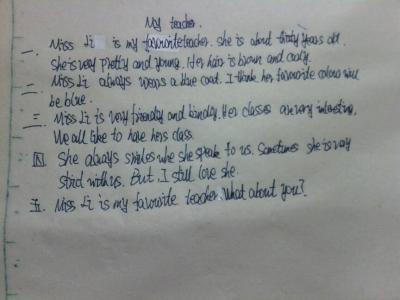 My teacher.
一. Miss Li is my favourite teacher. She is about thirty years old.
She is very pretty and young. Her hair is brown and curly.
二. Miss Li always wears a blue coat. I think her favourite colors will
be blue.
三. Miss Li is very friendly and kindly. Her classes are very interesting,
We all like to have hers class.
四. She always smiles whe she speak to us. Sometimes she is very
strict with us. But, I still love she.
五. Miss Li is my favorite teacher. What about you?